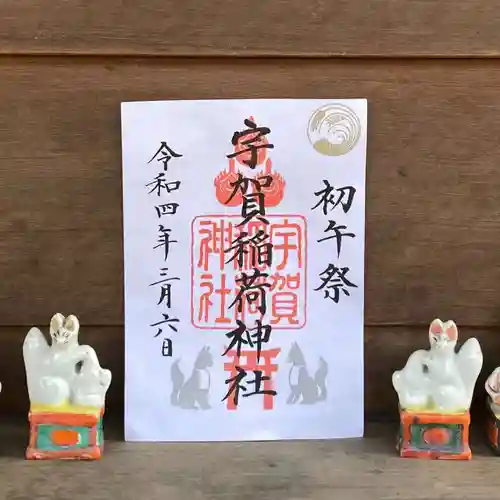 初午祭
宇賀稲荷神社
宇賀
稲荷
神社
令和四年三月六日